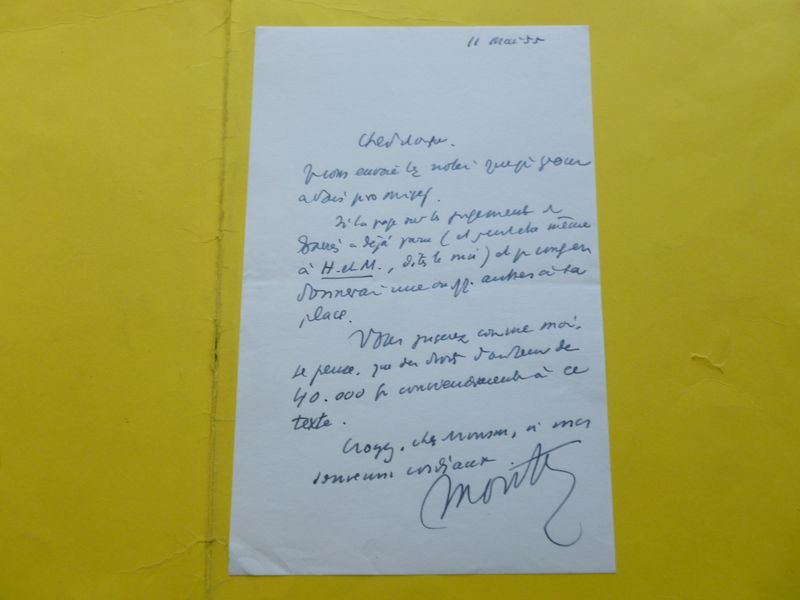 11 mai 55
Cher Monsieur.
Je vous envoie les notes que je vous
avais promises.
Si la page sur le jugement de
a déjà paru (et peut-être même
à H. et M., dites le moi) et je vous en
donnerai une ou qq. autres à sa
place.
Vous jugerez comme moi,
je pense, que des droits d'auteur de
40.000 fr conviendraient à ce
texte.
Croyez, cher Monsieur, à mes
souvenirs cordiaux.